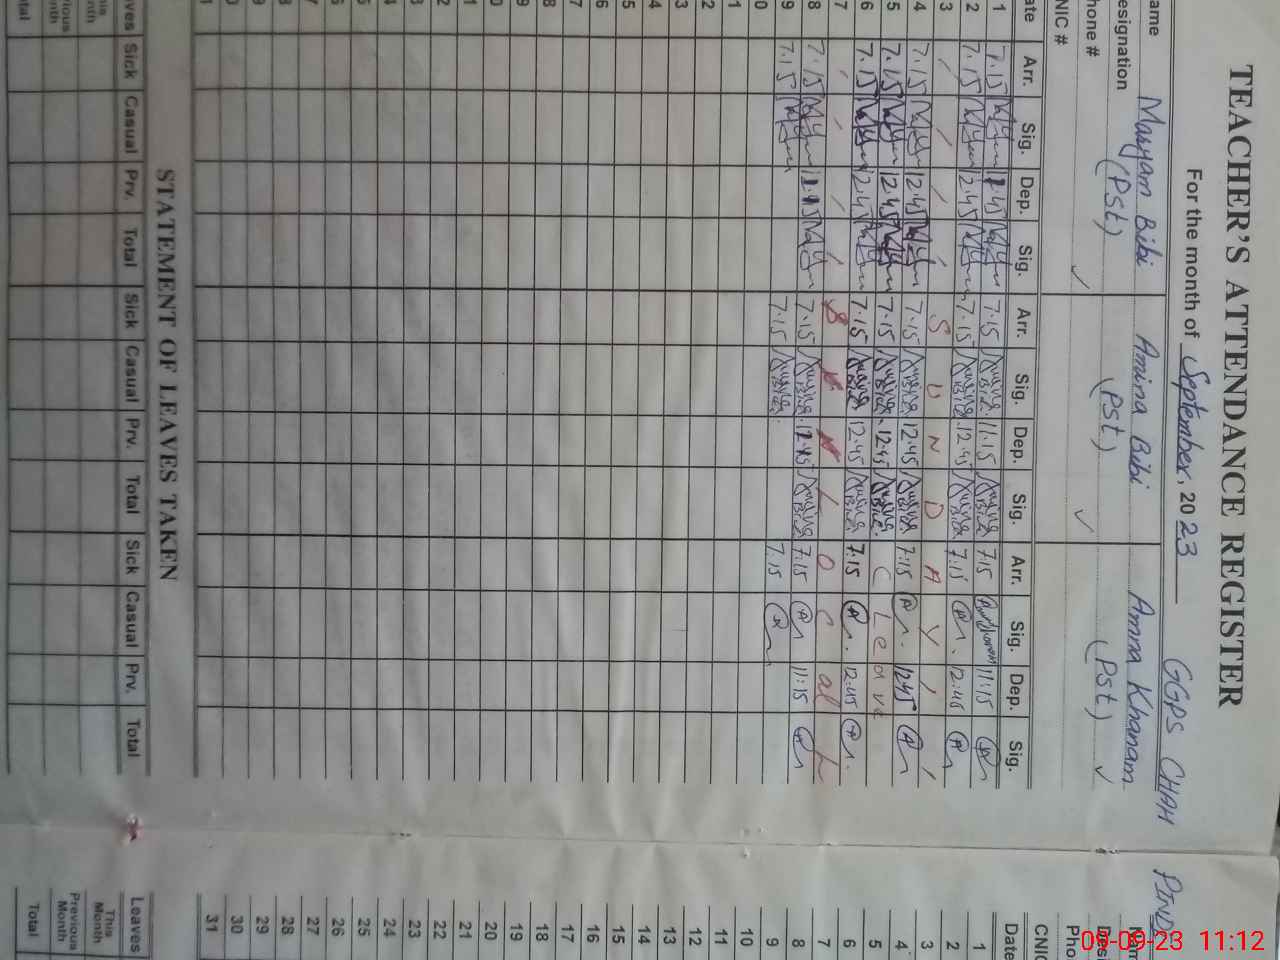 TEACHER'S ATTENDANCE REGISTER
For the month of September, 2023 GGPS CHAH
Name Maryam Bibi Amina Bibi Amna Khanam
Designation (Pst) (Pst) (Pst)
Phone # ✓ ✓ ✓
CNIC #
Date Arr. Sig. Dep. Sig. Arr. Sig. Dep. Sig. Arr. Sig. Dep. Sig.
1 7.15 7.15 11.15 7.15 11:15
2 7.15 12.45 7.15 12.45 7.15 12:45
3 S U N D A Y
4 7.15 12.45 7.15 12.45 7.15 12.45
5 7.15 12.45 7.15 12.45 C Leave
6 7.15 12.45 7.15 12.45 7.15 12.45
7 L O C al
8 7.15 7.15 12.45 7.15 11:15
9 7.15 7.15 7.15
STATEMENT OF LEAVES TAKEN
Leaves Sick Casual Prv. Total Sick Casual Prv. Total Sick Casual Prv. Total
This Month
Previous Month
Total
PIND
Date
1
2
3
4
5
6
7
8
9
10
11
12
13
14
15
16
17
18
19
20
21
22
23
24
25
26
27
28
29
30
31
Leaves
This Month
Previous Month
Total
09-09-23 11:12